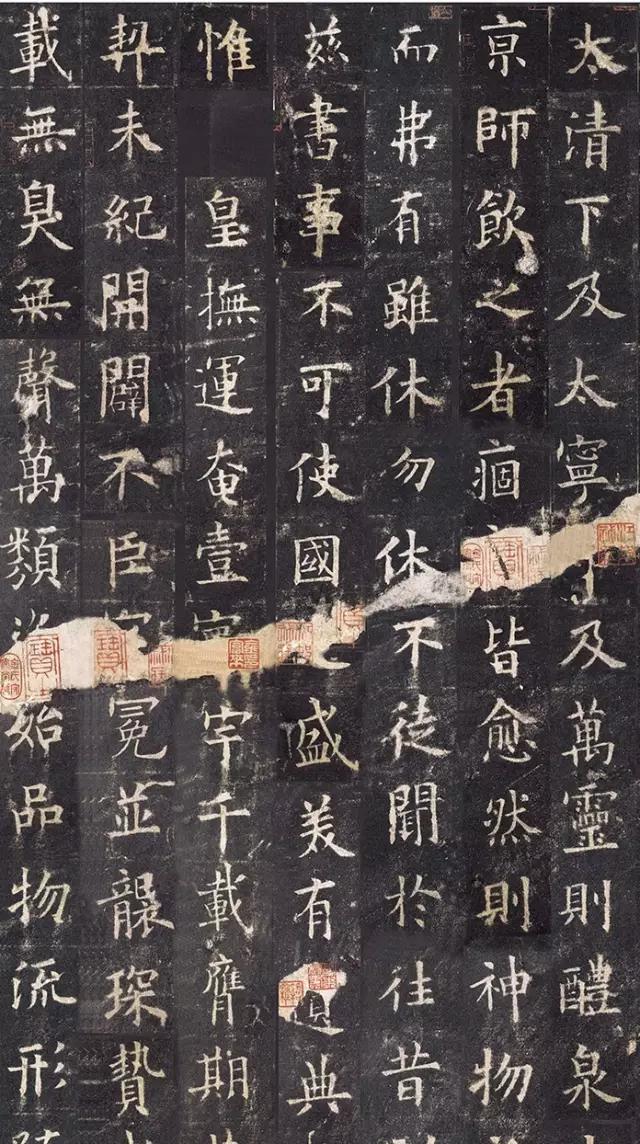 太清下及太寧及萬靈則醴泉
京師飲之者痼皆愈然則神物
而弗有雖休勿休不徒聞於往昔
茲書事不可使國盛美有典
惟皇撫運奄壹宇千載膺期
契未紀開闢不臣冕並襲琛贄
載無臭無聲萬類始品物流形